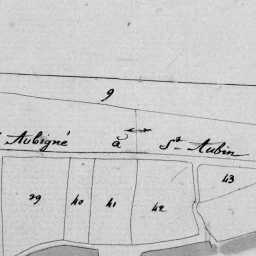 9
Aubigné à St Aubin
39 40 41 42 43